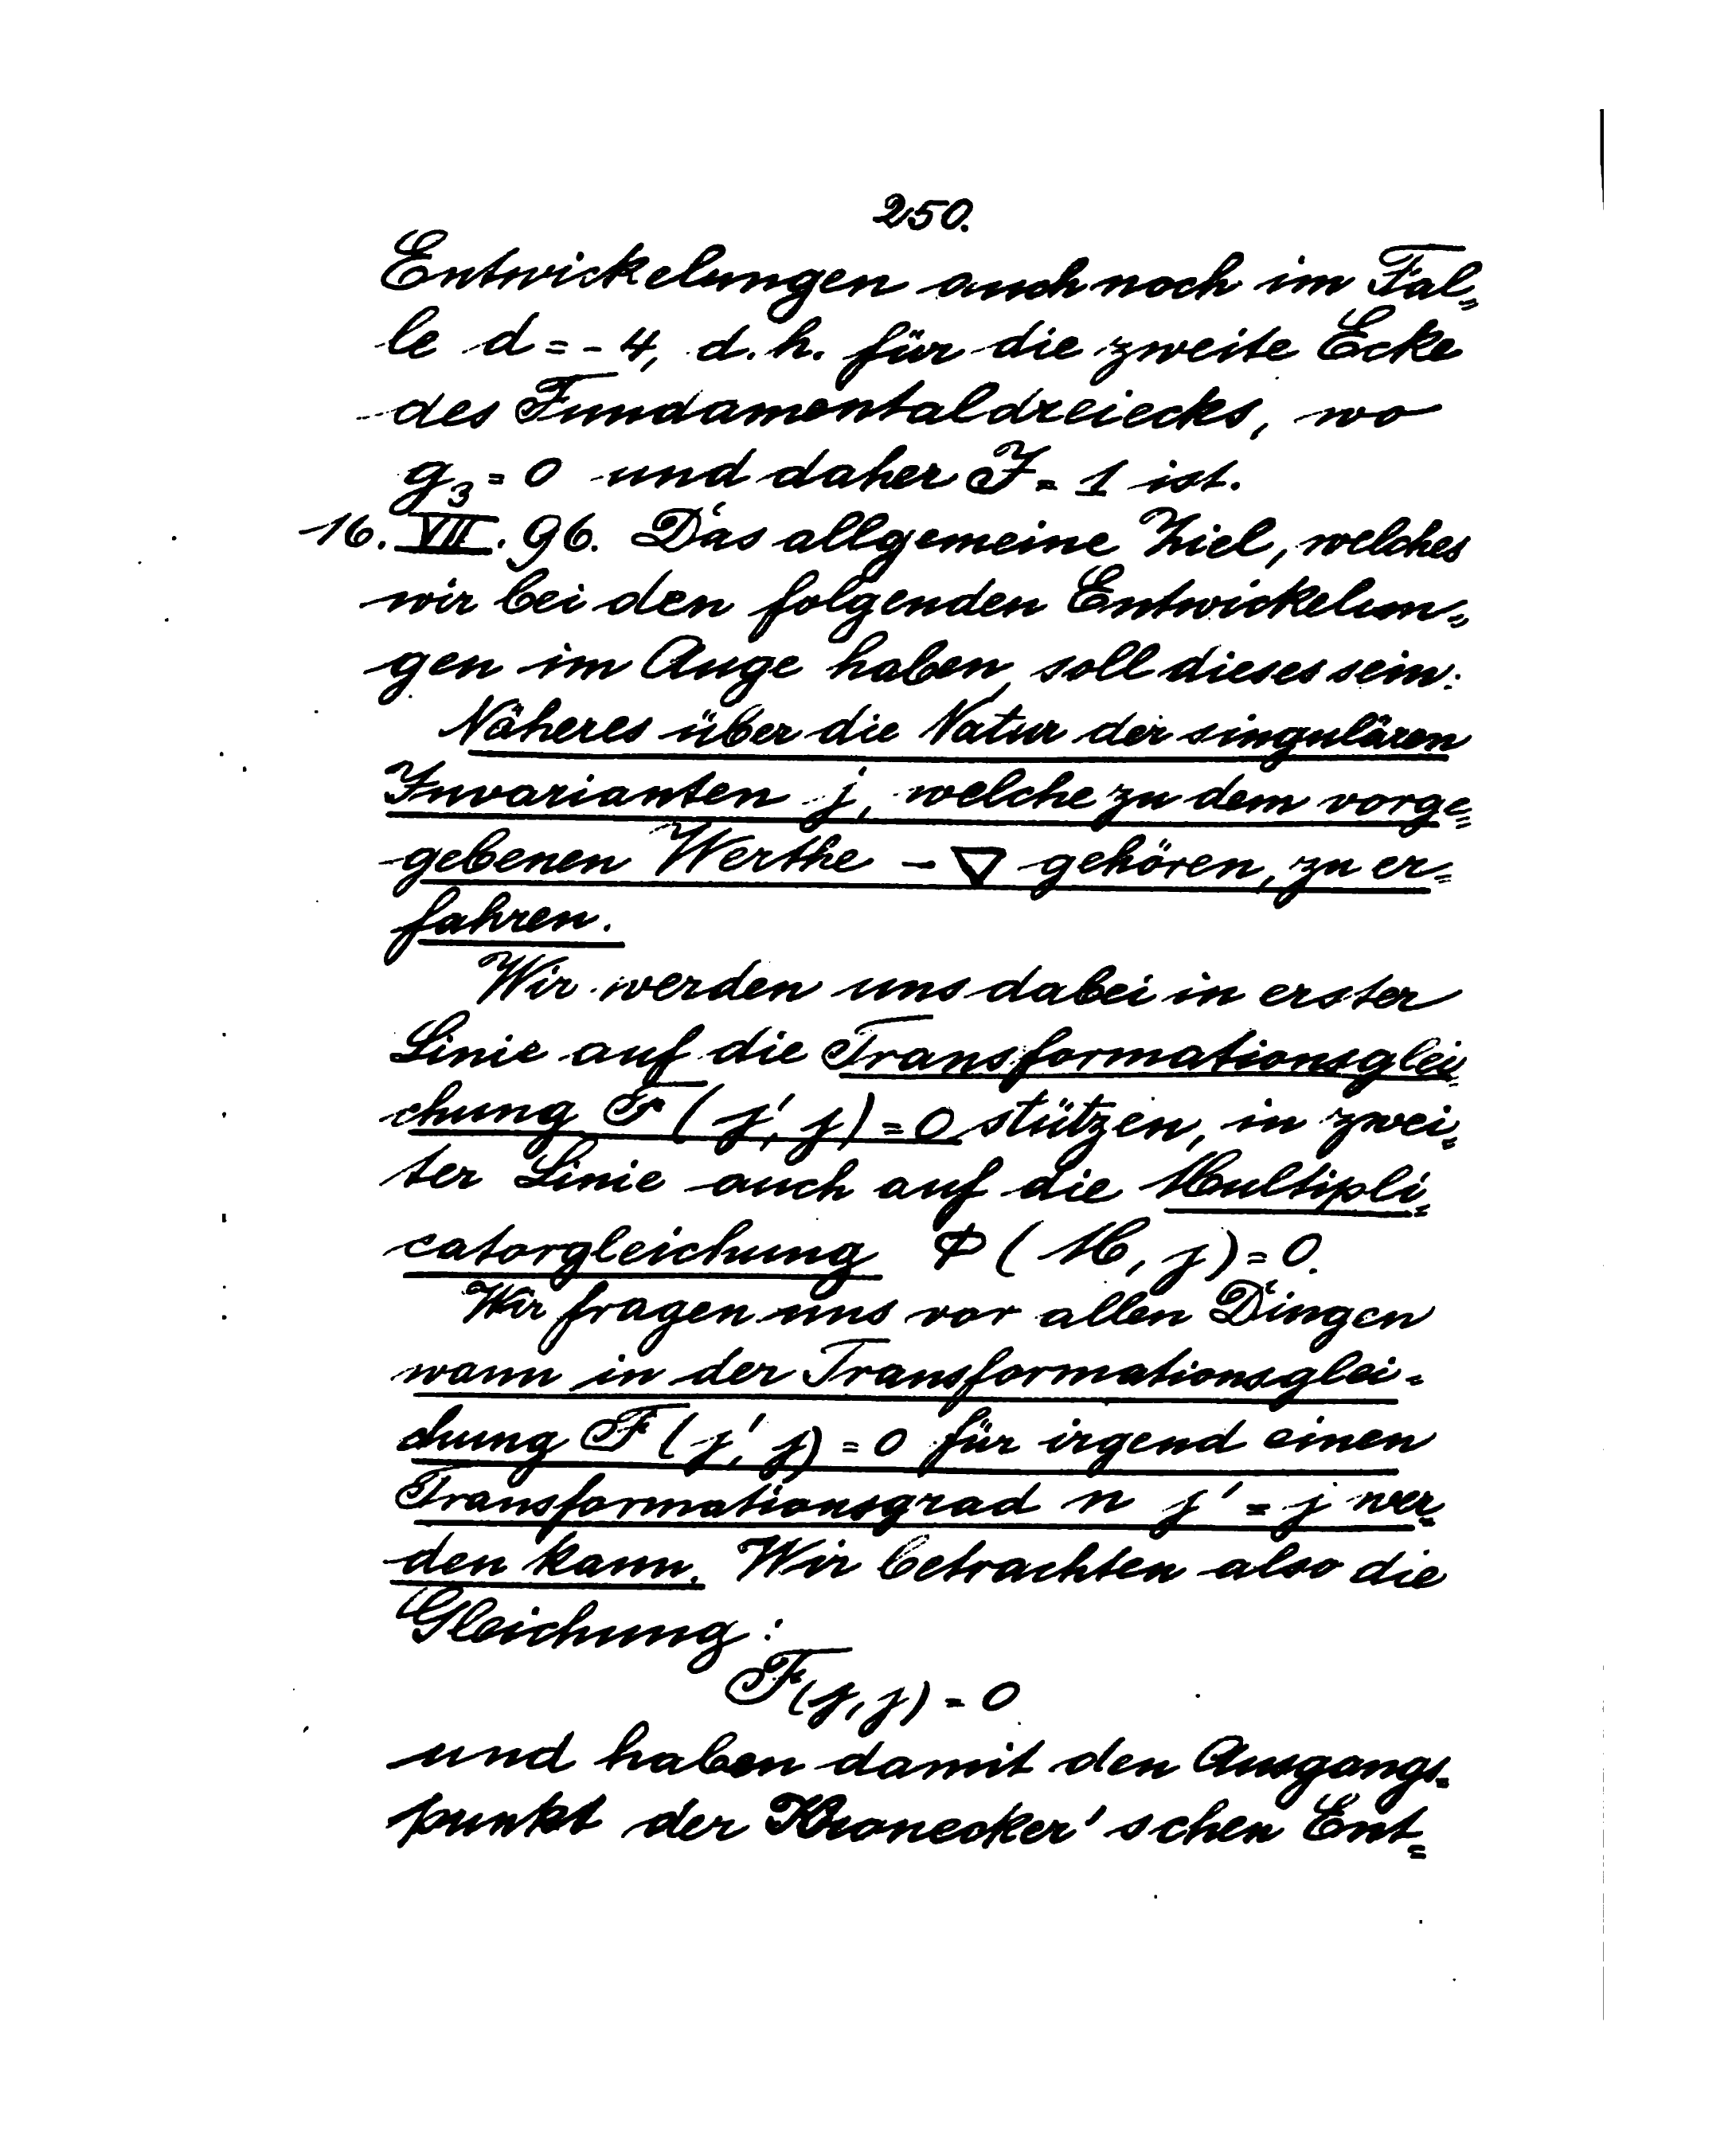 250.
Entwickelungen auch noch im Fal=
le d = - 4, d. h. für die zweite Ecke
des Fundamentaldreiecks, wo
g₃ = 0 und daher J = 1 ist.
16. VII. 96. Das allgemeine Ziel, welches
wir bei den folgenden Entwickelun=
gen im Auge haben, soll dieses sein:
Näheres über die Natur der singulären
Invarianten j, welche zu dem vorge=
gebenen Werthe - ∇ gehören, zu er=
fahren.
Wir werden uns dabei in erster
Linie auf die Transformationsglei=
chung F (j', j) = 0 stützen, in zwei=
ter Linie auch auf die Multipli=
catorgleichung Φ ( M, j) = 0.
Wir fragen uns vor allen Dingen
wann in der Transformationsglei=
chung F (j', j) = 0 für irgend einen
Transformationsgrad n j' = j wer=
den kann. Wir betrachten also die
Gleichung:
F(j, j) = 0
und haben damit den Ausgangs=
punkt der Kronecker'schen Ent=